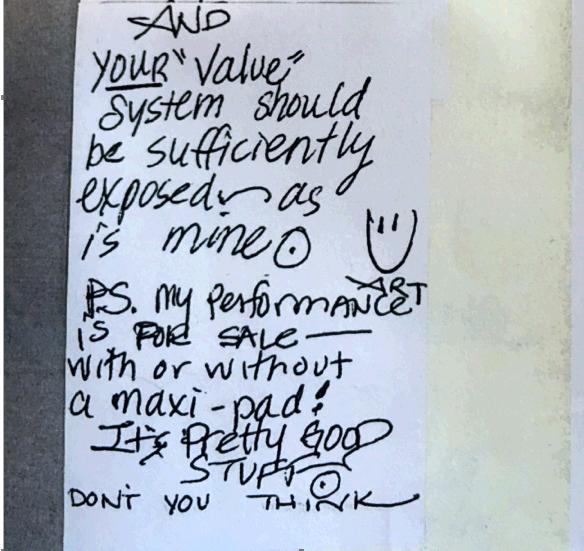 AND
YOUR "Value"
System should
be sufficiently
exposed as
is mine
P.S. My PerforMANCE
ART
is FOR SALE —
with or without
a maxi-pad!
It's Pretty GOOD
STUFF
DON'T YOU THINK